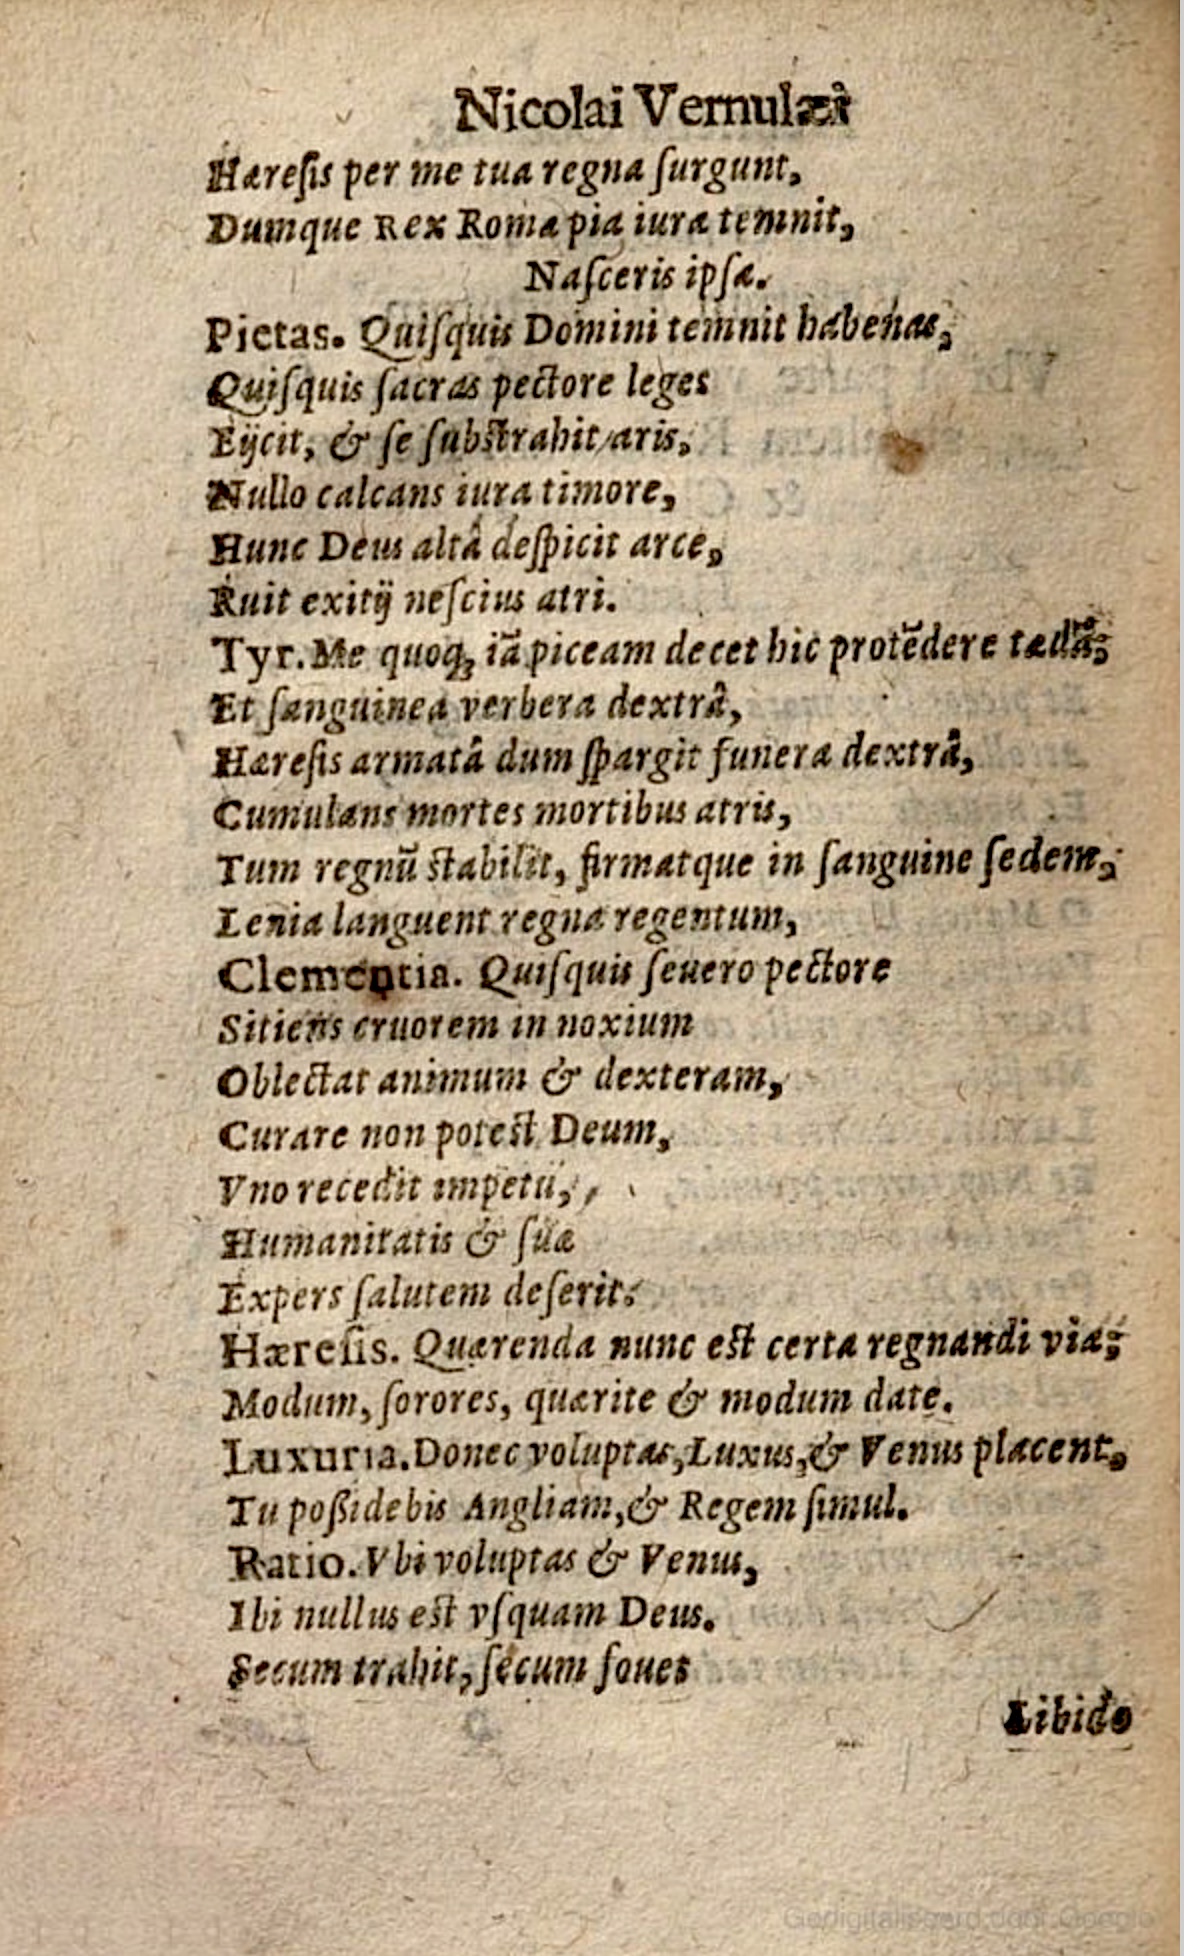 Nicolai Vernulæi
Hæreſis per me tua regna ſurgunt,
Dumque Rex Romæ pia iura temnit,
Naſceris ipſa.
Pietas. Quiſquis Domini temnit habenas,
Quiſquis ſacras pectore leges
Eijcit, & ſe ſubſtrahit aris,
Nullo calcans iura timore,
Hunc Deus altâ deſpicit arce,
Ruit exitij neſcius atri.
Tyr. Me quoq; iã piceam decet hic protẽdere tædã;
Et ſanguinea verbera dextrâ,
Hæreſis armatâ dum ſpargit funera dextrâ,
Cumulans mortes mortibus atris,
Tum regnũ ſtabilit, firmatque in ſanguine ſedem,
Lenia languent regna regentum,
Clementia. Quiſquis ſeuero pectore
Sitiens cruorem in noxium
Oblectat animum & dexteram,
Curare non poteſt Deum,
Vno recedit impetu,
Humanitatis & ſuæ
Expers ſalutem deſerit.
Hæreſis. Quærenda nunc eſt certa regnandi via;
Modum, ſorores, quærite & modum date.
Luxuria. Donec voluptas, Luxus, & Venus placent,
Tu poßidebis Angliam, & Regem ſimul.
Ratio. Vbi voluptas & Venus,
Ibi nullus eſt vſquam Deus.
Secum trahit, ſecum fouet
Libido
Gedigitaliseerd door Google